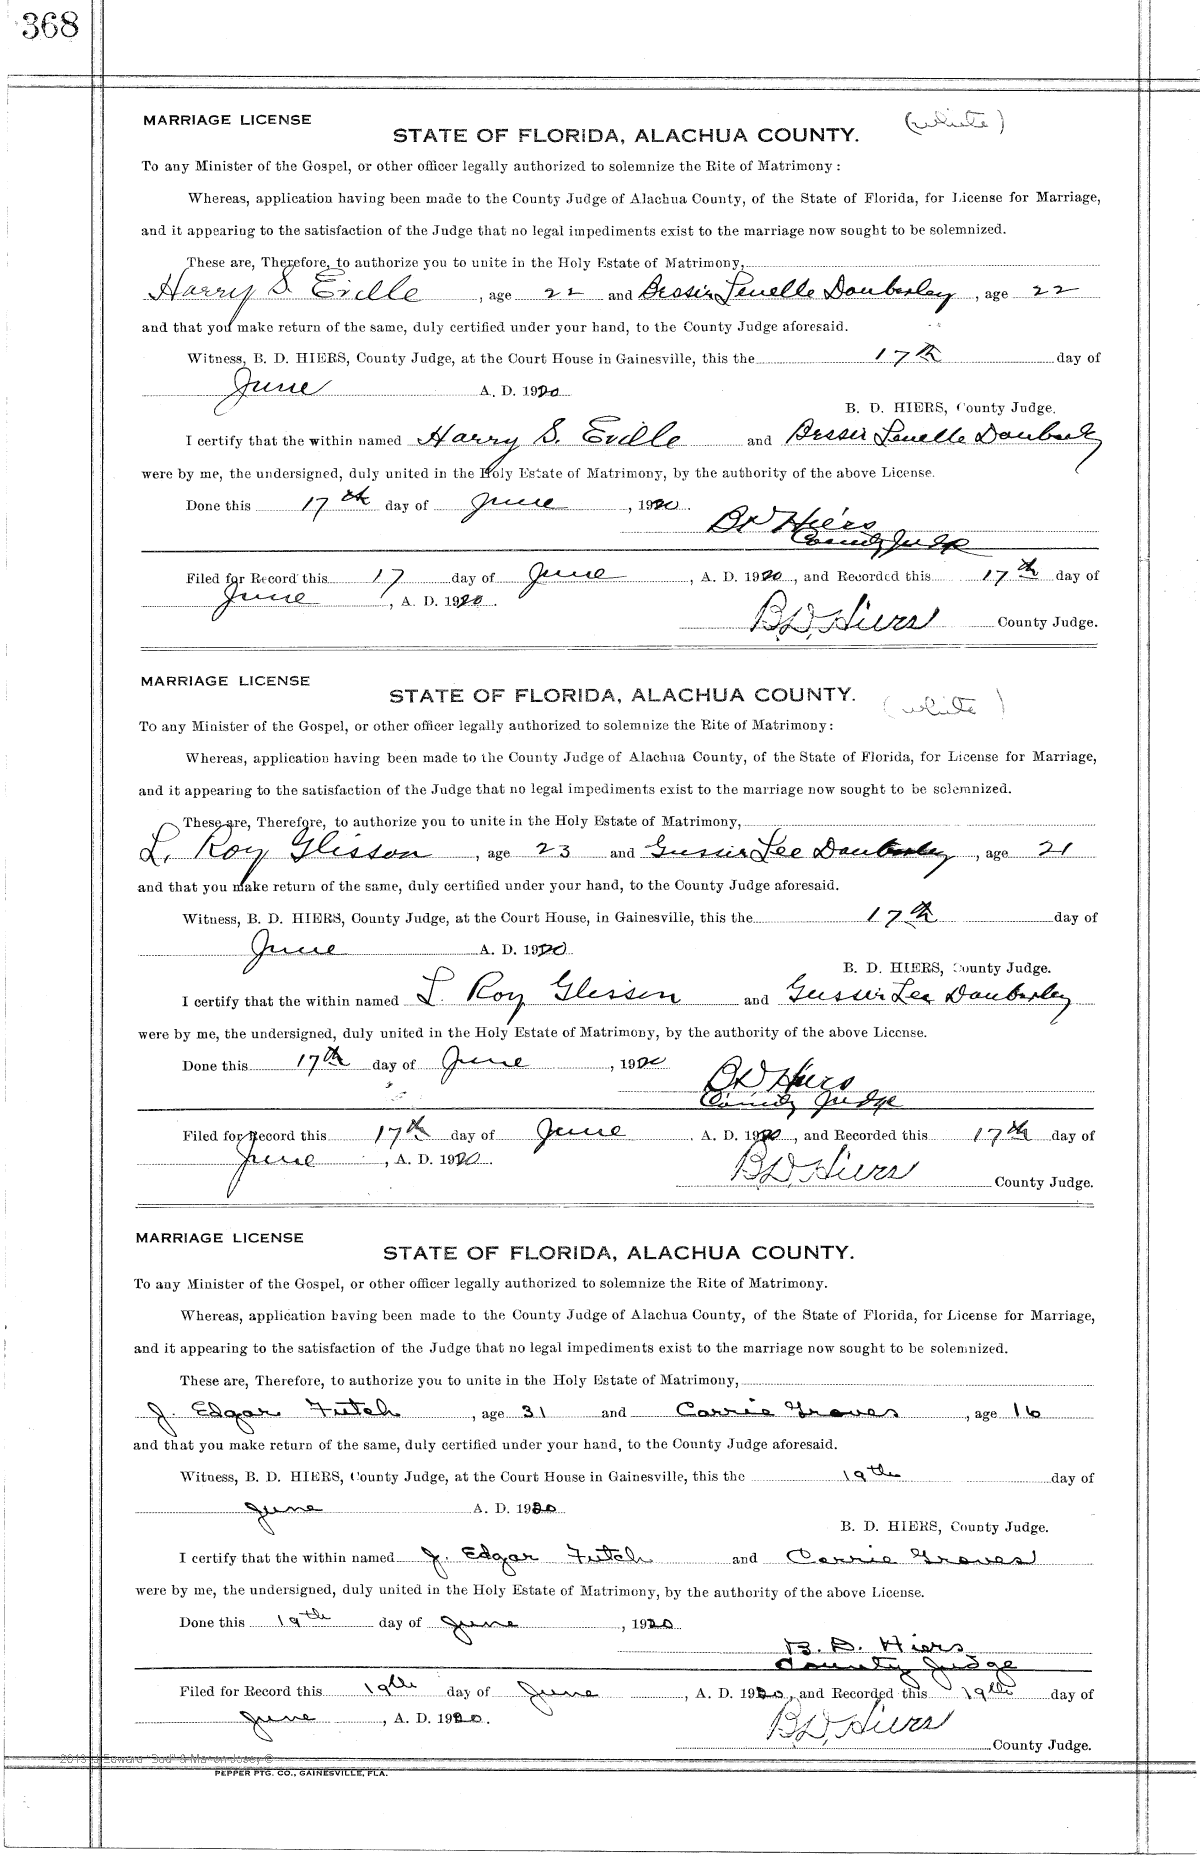 368
MARRIAGE LICENSE
(white)
STATE OF FLORIDA, ALACHUA COUNTY.
To any Minister of the Gospel, or other officer legally authorized to solemnize the Rite of Matrimony :
Whereas, application having been made to the County Judge of Alachua County, of the State of Florida, for License for Marriage,
and it appearing to the satisfaction of the Judge that no legal impediments exist to the marriage now sought to be solemnized.
These are, Therefore, to authorize you to unite in the Holy Estate of Matrimony,
Harry S. Eville , age 22 and Bessie Lenelle Dauberley , age 22
and that you make return of the same, duly certified under your hand, to the County Judge aforesaid.
Witness, B. D. HIERS, County Judge, at the Court House in Gainesville, this the 17th day of
June A. D. 1920
B. D. HIERS, County Judge.
I certify that the within named Harry S. Eville and Bessie Lenelle Dauberley
were by me, the undersigned, duly united in the Holy Estate of Matrimony, by the authority of the above License.
Done this 17th day of June , 1920 .
BD Hiers
County Judge
Filed for Record this 17 day of June , A. D. 1920 , and Recorded this 17th day of
June , A. D. 1920 .
B.D. Hiers County Judge.
MARRIAGE LICENSE
STATE OF FLORIDA, ALACHUA COUNTY.
(white)
To any Minister of the Gospel, or other officer legally authorized to solemnize the Rite of Matrimony :
Whereas, application having been made to the County Judge of Alachua County, of the State of Florida, for License for Marriage,
and it appearing to the satisfaction of the Judge that no legal impediments exist to the marriage now sought to be solemnized.
These are, Therefore, to authorize you to unite in the Holy Estate of Matrimony,
L. Roy Glisson , age 23 and Gussie Lee Dauberley , age 21
and that you make return of the same, duly certified under your hand, to the County Judge aforesaid.
Witness, B. D. HIERS, County Judge, at the Court House, in Gainesville, this the 17th day of
June A. D. 1920
B. D. HIERS, County Judge.
I certify that the within named L Roy Glisson and Gussie Lee Dauberley
were by me, the undersigned, duly united in the Holy Estate of Matrimony, by the authority of the above License.
Done this 17th day of June , 1920
BD Hiers
County Judge
Filed for Record this 17th day of June . A. D. 1920 , and Recorded this 17th day of
June , A. D. 1920 .
B.D. Hiers County Judge.
MARRIAGE LICENSE
STATE OF FLORIDA, ALACHUA COUNTY.
To any Minister of the Gospel, or other officer legally authorized to solemnize the Rite of Matrimony.
Whereas, application having been made to the County Judge of Alachua County, of the State of Florida, for License for Marriage,
and it appearing to the satisfaction of the Judge that no legal impediments exist to the marriage now sought to be solemnized.
These are, Therefore, to authorize you to unite in the Holy Estate of Matrimony,
J. Edgar Futch , age 31 and Carrie Groves , age 16
and that you make return of the same, duly certified under your hand, to the County Judge aforesaid.
Witness, B. D. HIERS, County Judge, at the Court House in Gainesville, this the 19th day of
June A. D. 1920
B. D. HIERS, County Judge.
I certify that the within named J. Edgar Futch and Carrie Groves
were by me, the undersigned, duly united in the Holy Estate of Matrimony, by the authority of the above License.
Done this 19th day of June , 1920
B. D. Hiers
County Judge
Filed for Record this 19th day of June , A. D. 1920 , and Recorded this 19th day of
June , A. D. 1920 .
B.D. Hiers County Judge.
PEPPER PTG. CO., GAINESVILLE, FLA.